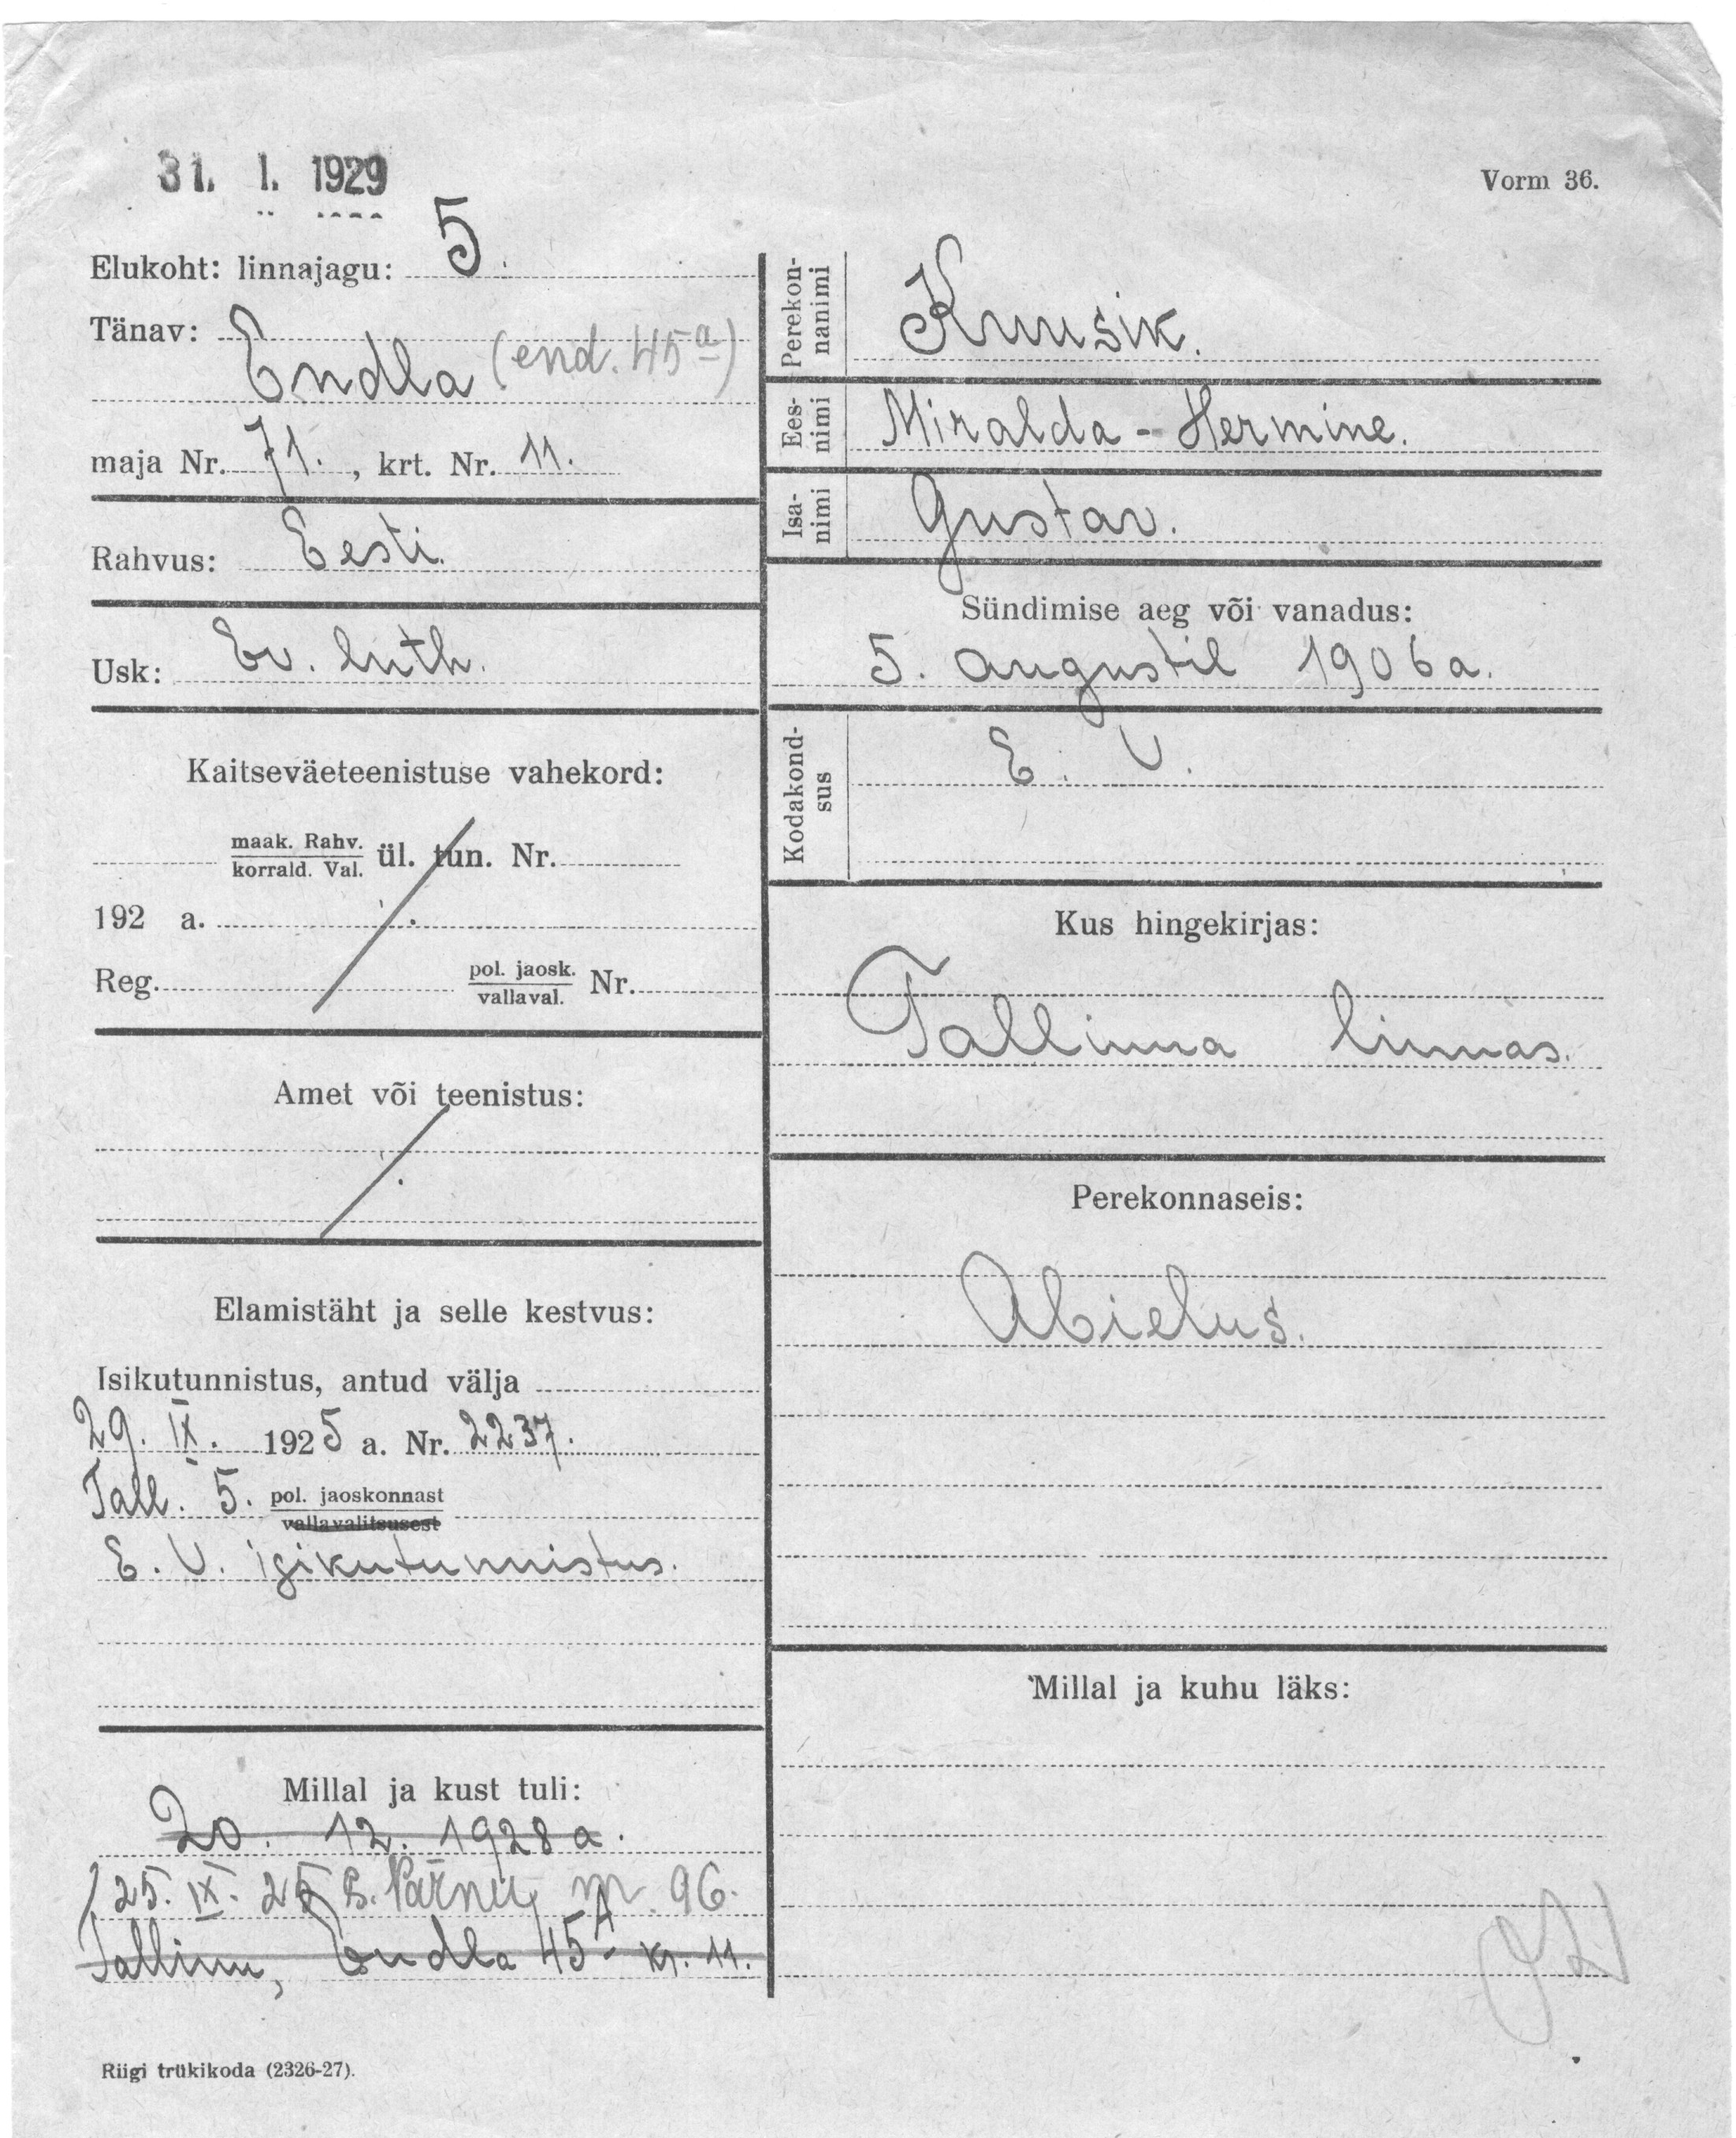 31. I. 1929
Vorm 36.
Elukoht: linnajagu: 5.
Tänav:
Endla (end. 45a)
maja Nr. 71., krt. Nr. 11.
Rahvus: Eesti.
Usk: Ev. luth.
Kaitseväeteenistuse vahekord:
maak. Rahv.
korrald. Val. ül. tun. Nr.
192 a.
Reg. pol. jaosk. Nr.
vallaval.
Amet või teenistus:
Elamistäht ja selle kestvus:
Isikutunnistus, antud välja
29. IX. 1925 a. Nr. 2237.
Tall. 5. pol. jaoskonnast
vallavalitsusest
E. V. isikutunnistus.
Millal ja kust tuli:
20. 12. 1928 a.
25. IX. 25 S. Pärnu m. 96.
Tallinn, Endla 45A kr. 11.
Riigi trükikoda (2326-27).
Perekon-
nanimi
Kuusik.
Ees-
nimi
Miralda - Hermine.
Isa-
nimi
Gustav.
Sündimise aeg või vanadus:
5. augustil 1906 a.
Kodakond-
sus
E. V.
Kus hingekirjas:
Tallinna linnas.
Perekonnaseis:
Abielus.
Millal ja kuhu läks: